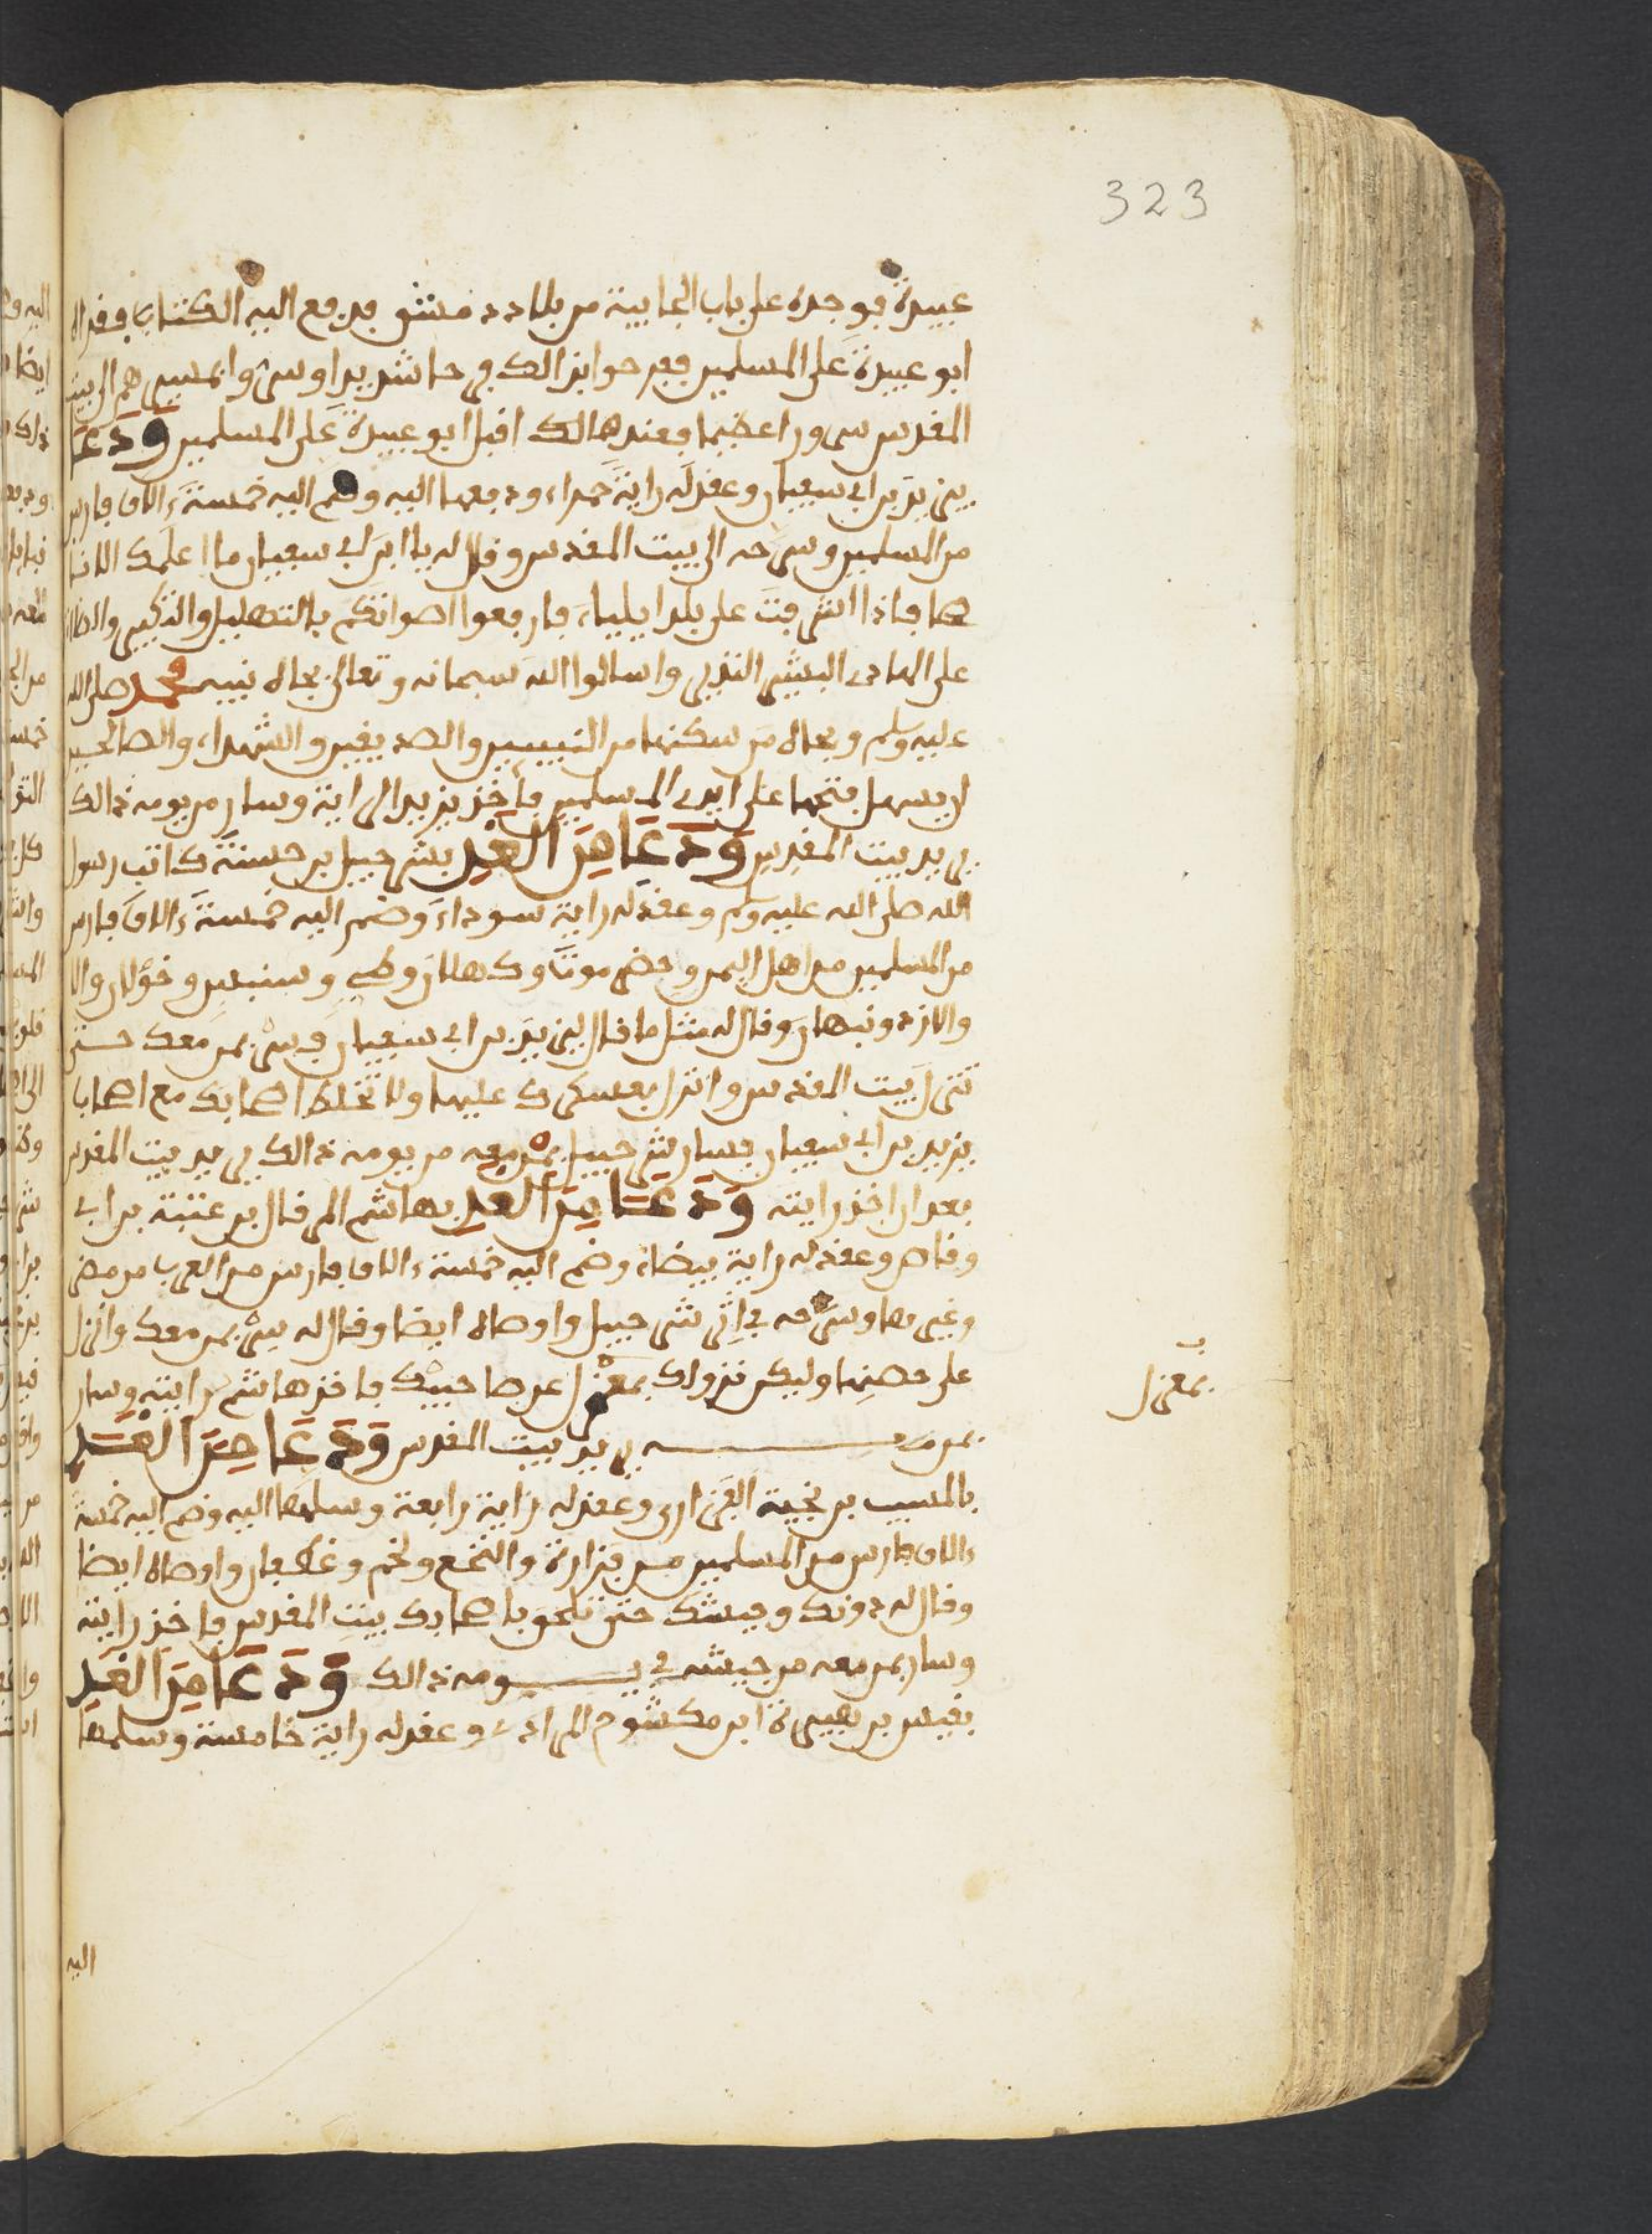 323
عبيدة فوجده على باب الجابية من بلاد دمشق فدفع اليه الكتاب فقراه
ابو عبيدة على المسلمين ففرحوا بذالك فرحا شديدا وسرّوا بمسيرهم الى بيت
المقدس سرورا عظيما فعند هنالك اقبل ابو عبيدة على المسلمين وَدَعَا
بيزيد بن ابي سفيان وعقد له راية حمراء ودفعها اليه وضم اليه خمسة ءالاف فارس
من المسلمين وسرحه الى بيت المقدس وقال له يا ابن ابي سفيان ما اعلمك الا ناصحا
فاذا اشرفت على بلد ايلياء فارفعوا اصواتكم بالتهليل والتكبير والصلاة
على الهادي البشير النذير واسالوا الله سبحانه وتعالى بجاه نبيه محمد صلى الله
عليه وسلم وبجاه من سكنها من النبيين والصديقين والشهداء والصالحين
ان يسهل فتحها على ايدي المسلمين فاخذ يزيد الراية وسار من يومه ذالك
يريد بيت المقدس وَدَعَا مِن الغد بشرحبيل بن حسنة كاتب رسول
الله صلى الله عليه وسلم وعقد له راية سوداء وضم اليه خمسة ءالاف فارس
من المسلمين من اهل اليمن وحضرموت وكهلان وطي وسنبس وخولان والا
والازد ونبهان وقال له مثل ما قال ليزيد بن ابي سفيان وسر بمن معك حتى
تنزل بيت المقدس وانزل بعسكرك عليها ولا تخلط اصحابك مع اصحاب
يزيد بن ابي سفيان فسار شرحبيل بمن معه من يومه ذالك يريد بيت المقدس
بعد ان اخذ رايته وَدَعَا مِن الغد بهاشم المرقال بن عتبة بن ابي
وقاص وعقد له راية بيضاء وضم اليه خمسة ءالاف فارس من العرب من مضر
وغيرها وسرحه في اثر شرحبيل واوصاه ايضا وقال له سر بمن معك وانزل
على حصنها وليكن نزولك بمعزل عن صاحبيك فاخذ هاشم رايته وسار
بمعزل
بمن معه يريد بيت المقدس وَدَعَا مِن الغد
بالمسيب بن نجية الفزاري وعقد له راية رابعة وسلمها اليه وضم اليه خمسة
ءالاف فارس من المسلمين من فزارة والنخع ولخم وغطفان واوصاه ايضا
وقال له دونك وجيشك حتى تلحق باصحابك ببيت المقدس فاخذ رايته
وسار بمن معه من جيشه في يومه ذالك وَدَعَا مِن الغد
بقيس بن هبيرة ابن مكشوح المرادي وعقد له راية خامسة وسلمها
اليه